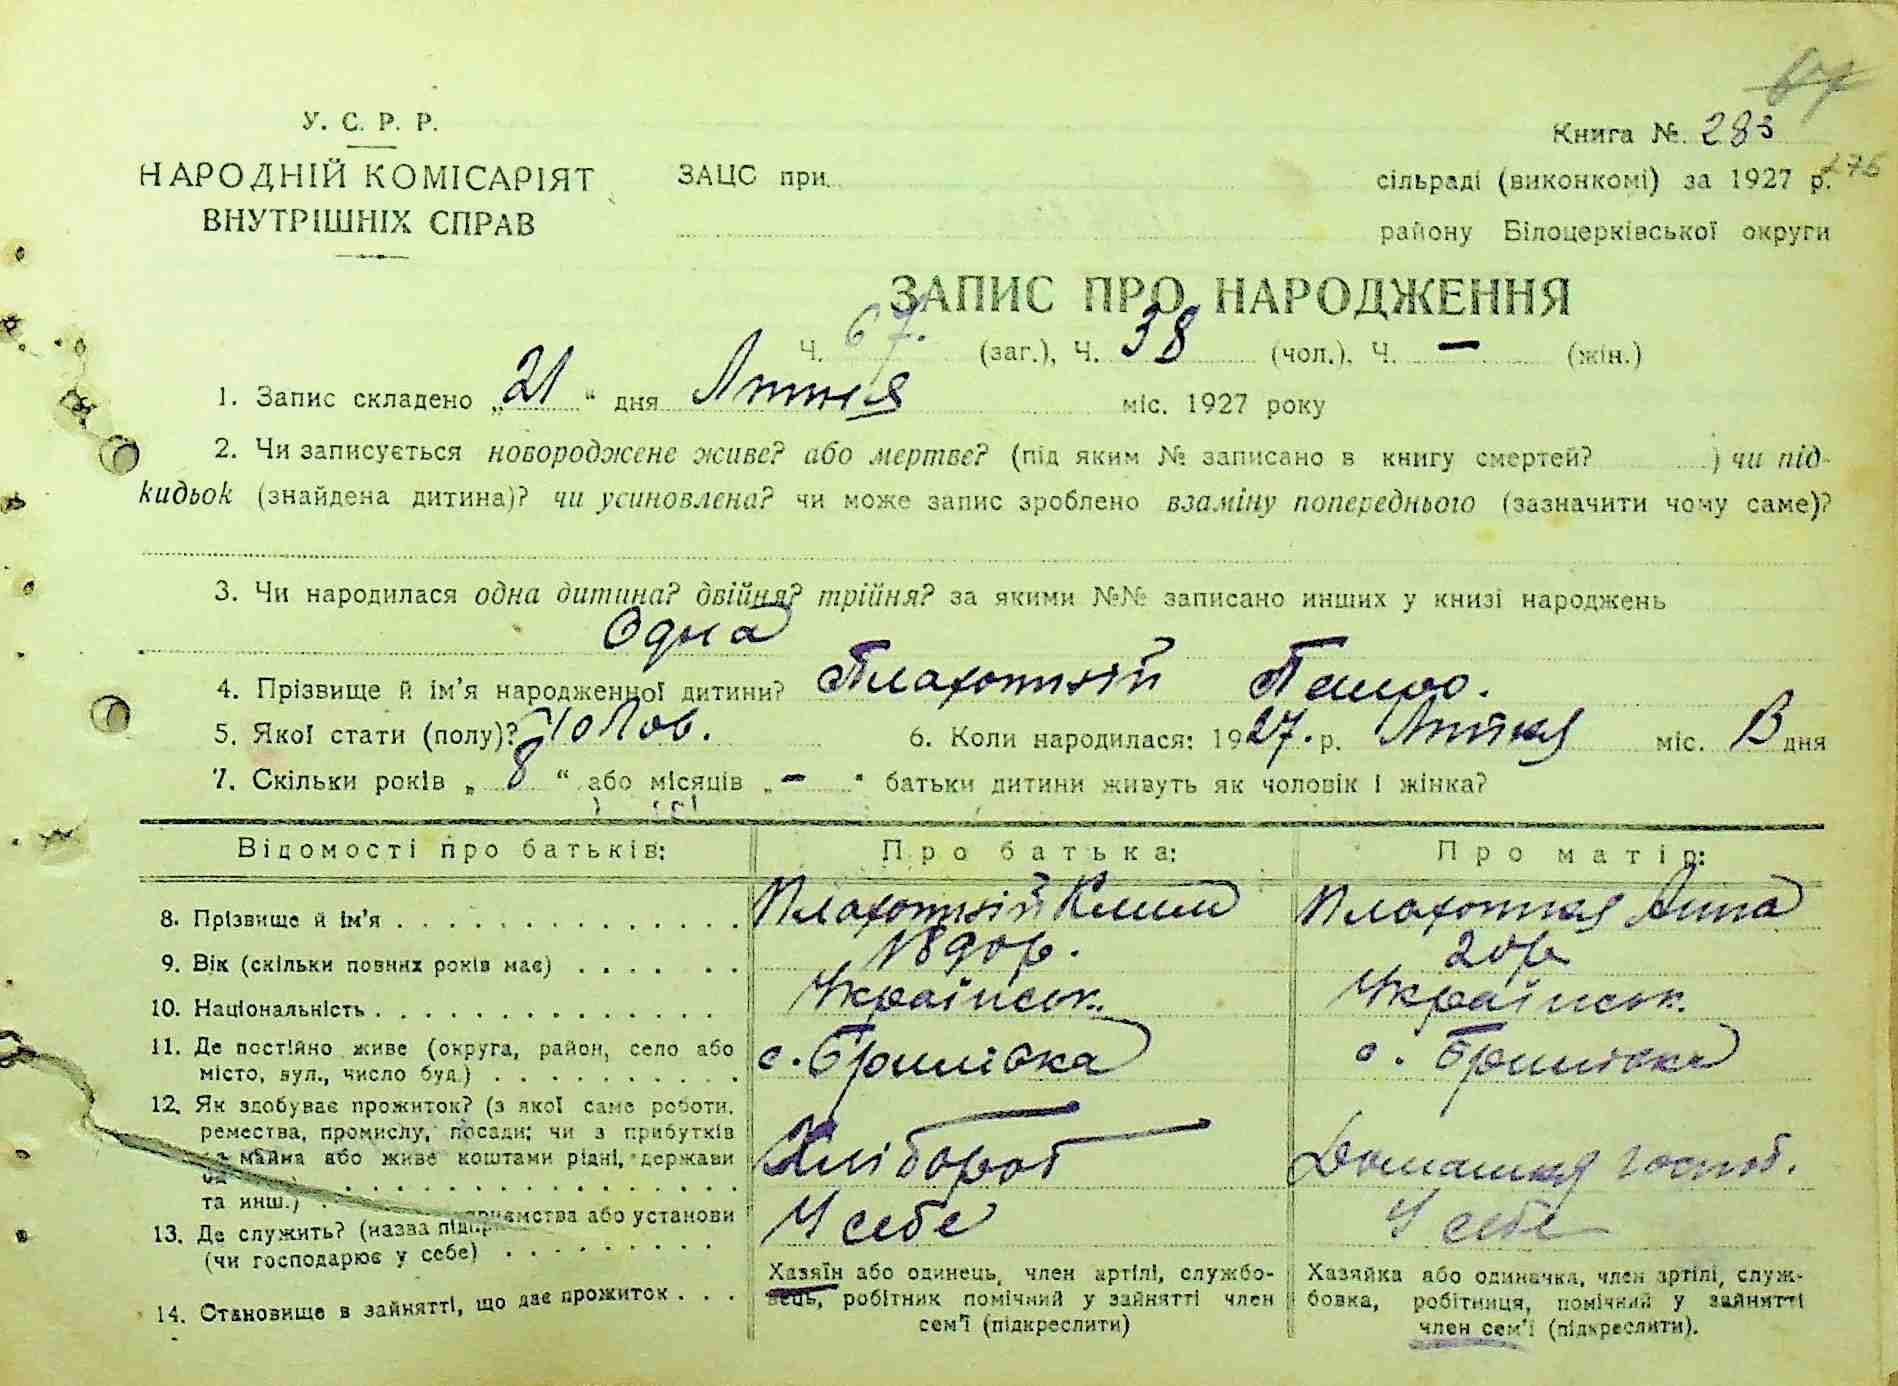 У. С. Р. Р.
НАРОДНІЙ КОМІСАРІЯТ
ВНУТРІШНІХ СПРАВ
67
Книга № 283
ЗАЦС при
сільраді (виконкомі) за 1927 р. 276
району Білоцерківської округи
ЗАПИС ПРО НАРОДЖЕННЯ
Ч. 67. (заг.), Ч. 38 (чол.), Ч. — (жін.)
1. Запис складено „21“ дня Лютня міс. 1927 року
2. Чи записується новороджене живе? або мертве? (під яким № записано в книгу смертей? ) чи під-
кидьок (знайдена дитина)? чи усиновлена? чи може запис зроблено взаміну попереднього (зазначити чому саме)?
3. Чи народилася одна дитина? двійня? трійня? за якими №№ записано инших у книзі народжень
Одна
4. Прізвище й ім'я народженної дитини? Плахотній Павло.
5. Якої стати (полу)? Чолов. 6. Коли народилася: 1927. р. Лютня міс. дня
7. Скільки років „ 8 “ або місяців „ – “ батьки дитини живуть як чоловік і жінка?
Відомості про батьків: Про батька: Про матір:
8. Прізвище й ім'я Плахотній Клим Плахотная Анна
9. Вік (скільки повних років має) 1890р. 20р
10. Національність Українськ. Українськ.
11. Де постійно живе (округа, район, село або
місто, вул., число буд.) с. Брилівка с. Брилівка
12. Як здобуває прожиток? (з якої саме роботи,
ремества, промислу, посади; чи з прибутків
майна або живе коштами рідні, держави
та инш.) Хлібороб Домашня господ.
13. Де служить? (назва підприємства або установи
(чи господарює у себе) У себе У себе
14. Становище в зайнятті, що дає прожиток
Хазяїн або одинець, член артілі, службо-
вець, робітник помічний у зайнятті член
сем'ї (підкреслити)
Хазяйка або одиначка, член артілі, служ-
бовка, робітниця, помічний у зайнятті
член сем'ї (підкреслити).